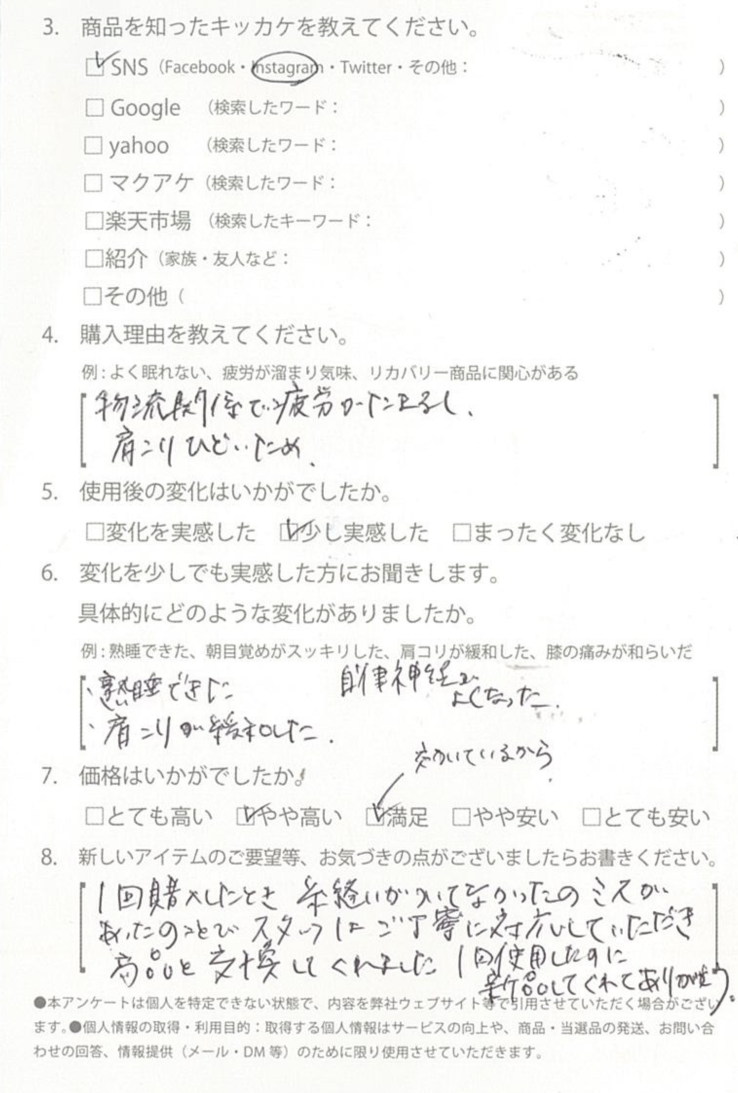 3. 商品を知ったキッカケを教えてください。
☑SNS（Facebook・Instagram・Twitter・その他：　）
□Google （検索したワード：　）
□yahoo （検索したワード：　）
□マクアケ（検索したワード：　）
□楽天市場 （検索したキーワード：　）
□紹介（家族・友人など：　）
□その他（　）
4. 購入理由を教えてください。
例：よく眠れない、疲労が溜まり気味、リカバリー商品に関心がある
物流関係で疲労がたまるし、
肩こりひどいため、
5. 使用後の変化はいかがでしたか。
□変化を実感した ☑少し実感した □まったく変化なし
6. 変化を少しでも実感した方にお聞きします。
具体的にどのような変化がありましたか。
例：熟睡できた、朝目覚めがスッキリした、肩コリが緩和した、膝の痛みが和らいだ
・熟睡できた 自律神経が
よくなった.
・肩こりが緩和した.
7. 価格はいかがでしたか。
効いているから
□とても高い ☑やや高い ☑満足 □やや安い □とても安い
8. 新しいアイテムのご要望等、お気づきの点がございましたらお書きください。
1回購入したとき 糸縫いがついてなかったのミスが
あったのことで スタッフは ご丁寧に対応していただき
商品と交換してくれました 1回使用したのに
新品してくれてありがとう。
●本アンケートは個人を特定できない状態で、内容を弊社ウェブサイト等で引用させていただく場合がござい
ます。●個人情報の取得・利用目的：取得する個人情報はサービスの向上や、商品・当選品の発送、お問い合
わせの回答、情報提供（メール・DM 等）のために限り使用させていただきます。